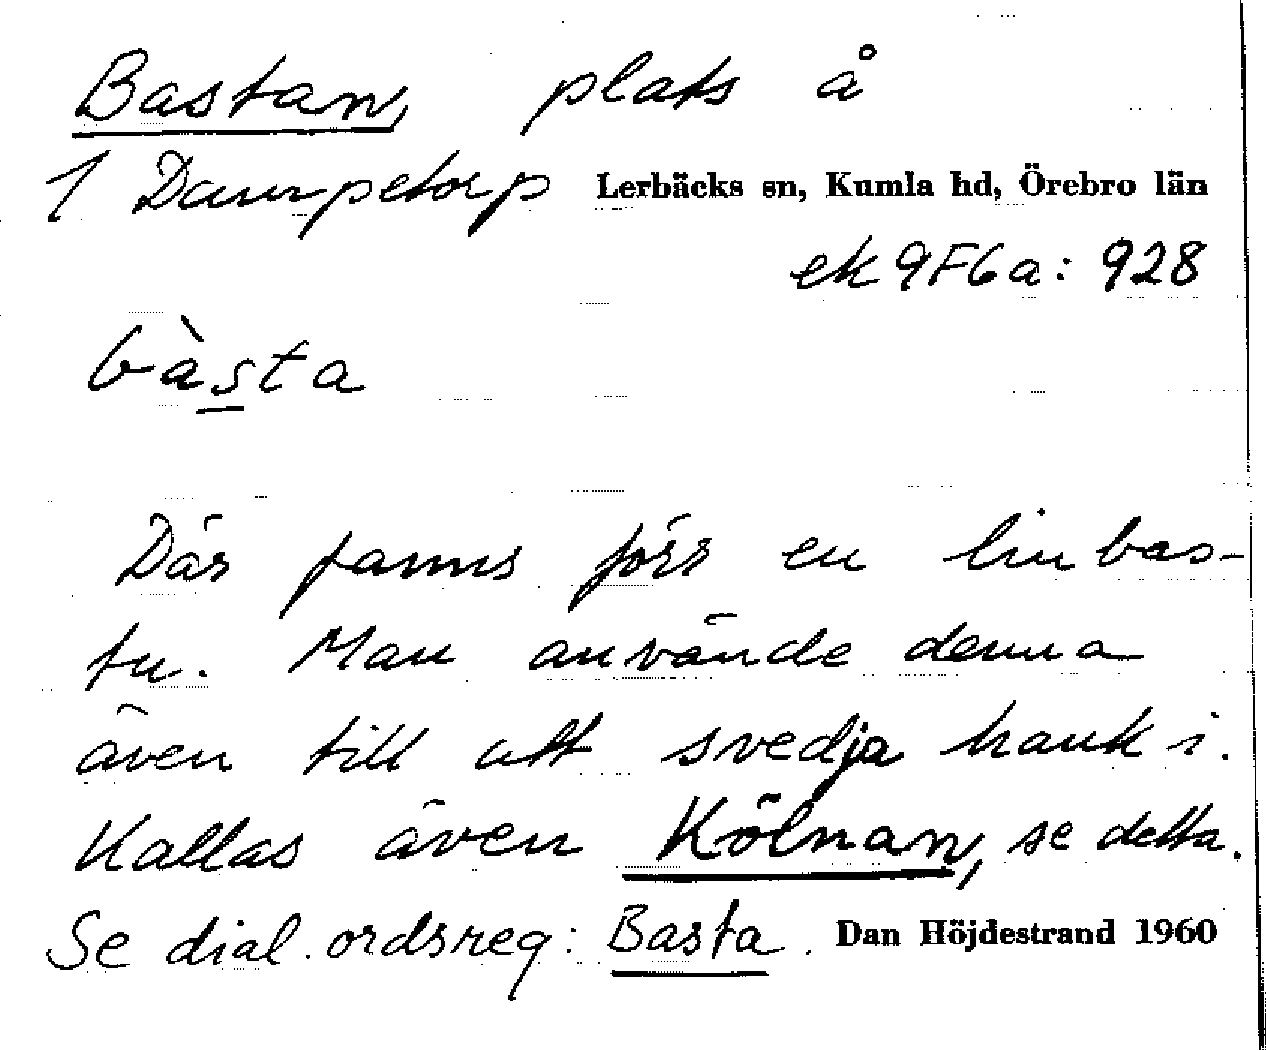 Bastan, plats å
1 Dampetorp Lerbäcks sn, Kumla hd, Örebro län
ek 9F6a: 928
bàsta
Där fanns förr en linbas-
tu. Man använde denna
även till att svedja hank i.
Kallas även Kölnan, se detta.
Se dial. ordsreg: Basta. Dan Höjdestrand 1960